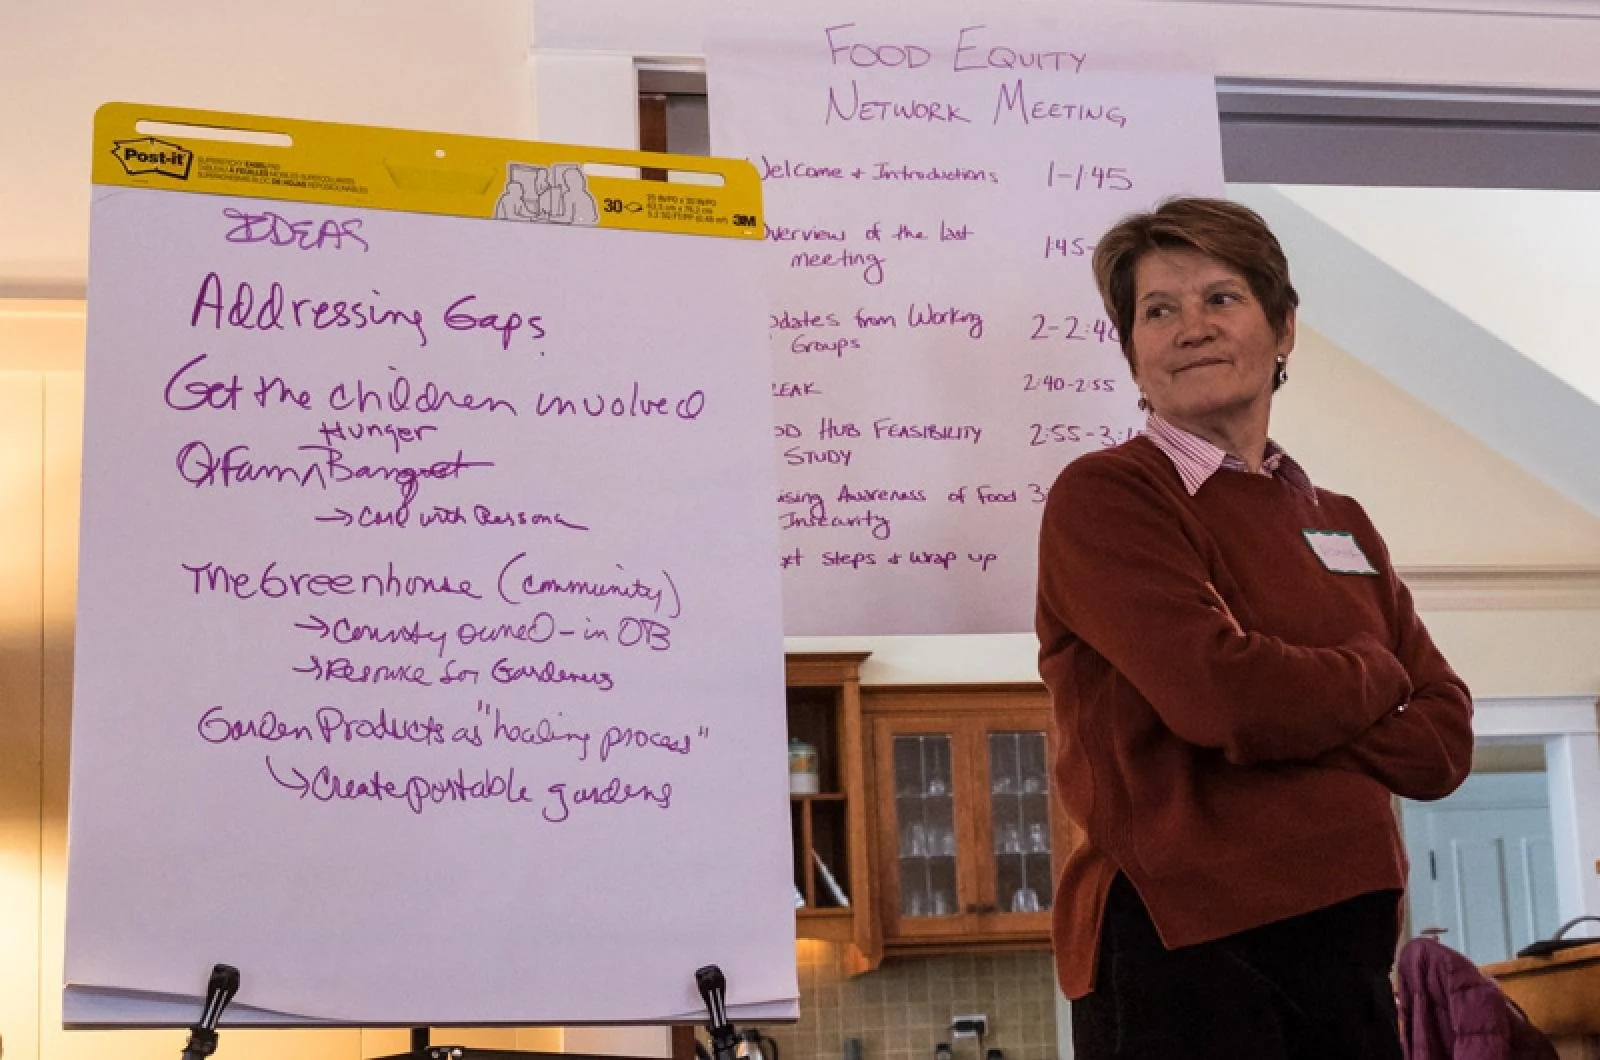 Post-it
SUPERSTICKY EASEL PAD
30
3M
IDEAS
Addressing Gaps
Get the children involved
Hunger
Oxfam Banquet
→ Card with Persona
The Greenhouse (community)
→ County owned - in OB
→ Resource for Gardeners
Garden Products as "healing process"
→ Create portable gardens
FOOD EQUITY
NETWORK MEETING
Welcome + Introductions 1-1:45
Overview of the last 1:45-
meeting
pdates from Working 2-2:40
Groups
EAK 2:40-2:55
OD HUB FEASIBILITY 2:55-3:1
STUDY
ising Awareness of Food 3:
Insecurity
xt steps + wrap up